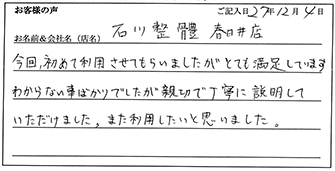 お客様の声 ご記入日 27年 12月 4日
お名前&会社名(店名) 石川整體 春日井店
今回、初めて利用させてもらいましたがとても満足しています
わからない事ばかりでしたが親切で丁寧に説明して
いただけました。また利用したいと思いました。